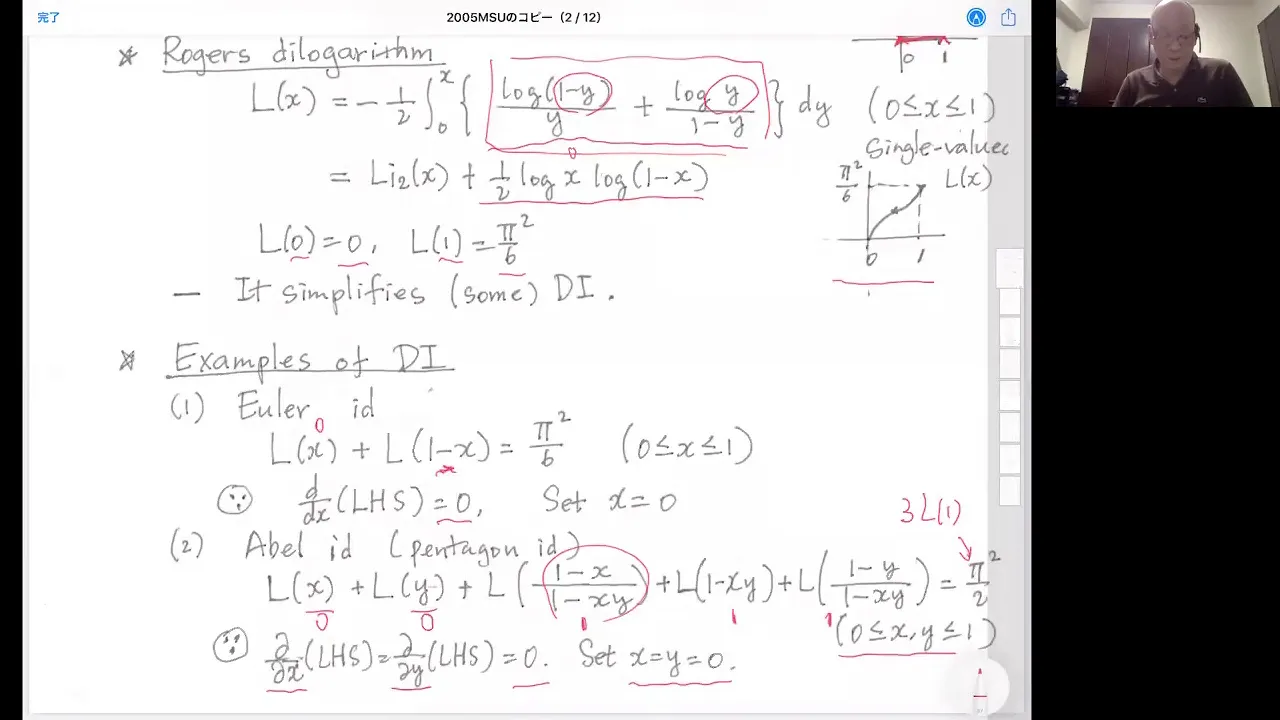 完了
2005MSUのコピー（2 / 12）
* Rogers dilogarithm
0 1
L(x) = -1/2 ∫₀ˣ { log(1-y)/y + log y/1-y } dy (0≤x≤1)
0
single-valued
= Li₂(x) + 1/2 log x log(1-x)
π²/6 L(x)
0 1
L(0)=0, L(1)=π²/6
— It simplifies (some) DI.
* Examples of DI
(1) Euler id
0
L(x) + L(1-x) = π²/6 (0≤x≤1)
d/dx (LHS) = 0, Set x=0
3L(1)
(2) Abel id (pentagon id)
L(x) + L(y) + L(1-x/1-xy) + L(1-xy) + L(1-y/1-xy) = π²/2
0 0 1 1 1
(0≤x,y≤1)
∂/∂x (LHS) = ∂/∂y (LHS) = 0. Set x=y=0.